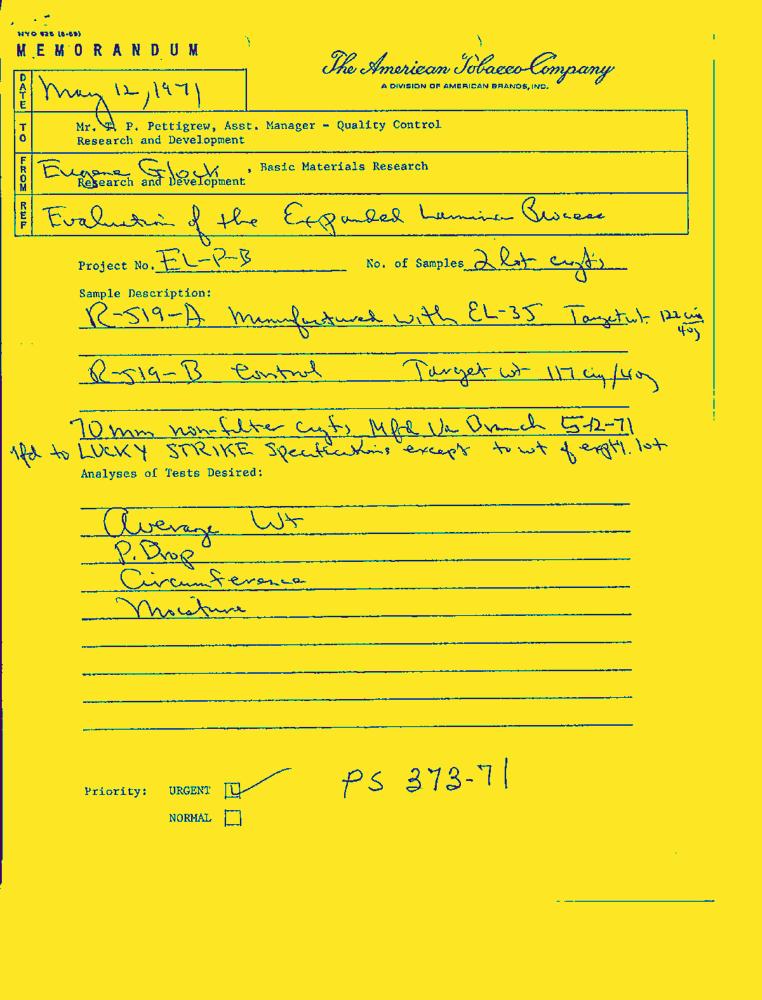 HYO 525 (6-69)
MEMORANDUM
The American Tobacco Company
A DIVISION OF AMERICAN BRANDS, INC.
DATE May 12, 1971
TO Mr. P. Pettigrew, Asst. Manager - Quality Control
Research and Development
FROM Eugene Glock, Basic Materials Research
Research and Development
REF Evaluation of the Expanded Lamina Process
Project No. EL-P-B No. of Samples 2 lot cigts
Sample Description:
R-519-A Manufactured with EL-35 Target wt. 122 cig
4oz
R-519-B Control Target wt 117 cig/4oz
70mm nonfilter cigts Mfd Va Branch 5-12-71
Mfd to LUCKY STRIKE Specifications except to wt of exptl. lot
Analyses of Tests Desired:
Average Wt
P. Drop
Circumference
Moisture
Priority: URGENT
PS 373-71
NORMAL